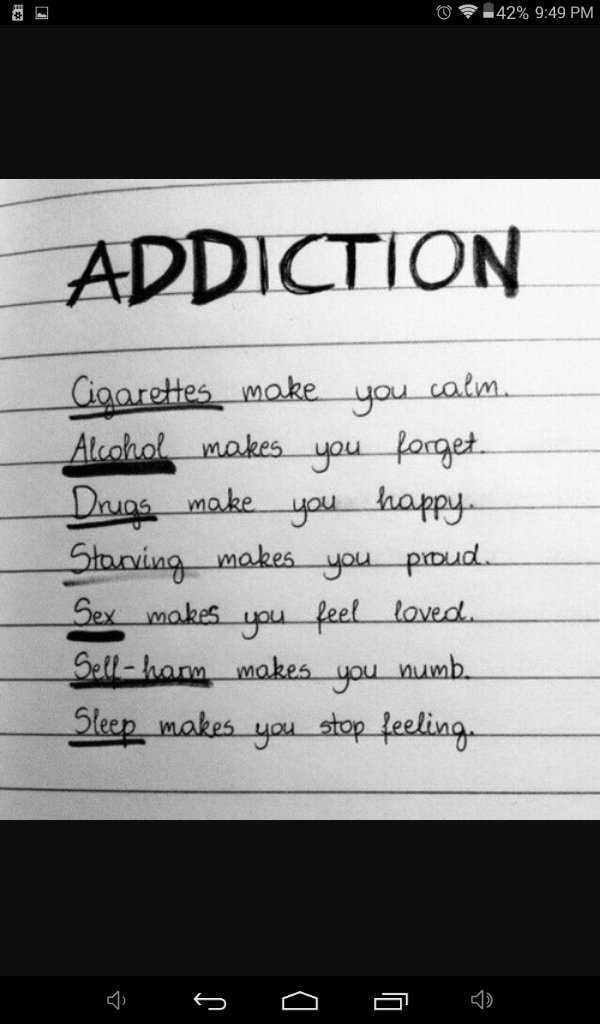 42% 9:49 PM
ADDICTION
Cigarettes make you calm.
Alcohol makes you forget.
Drugs make you happy.
Starving makes you proud.
Sex makes you feel loved.
Self-harm makes you numb.
Sleep makes you stop feeling.